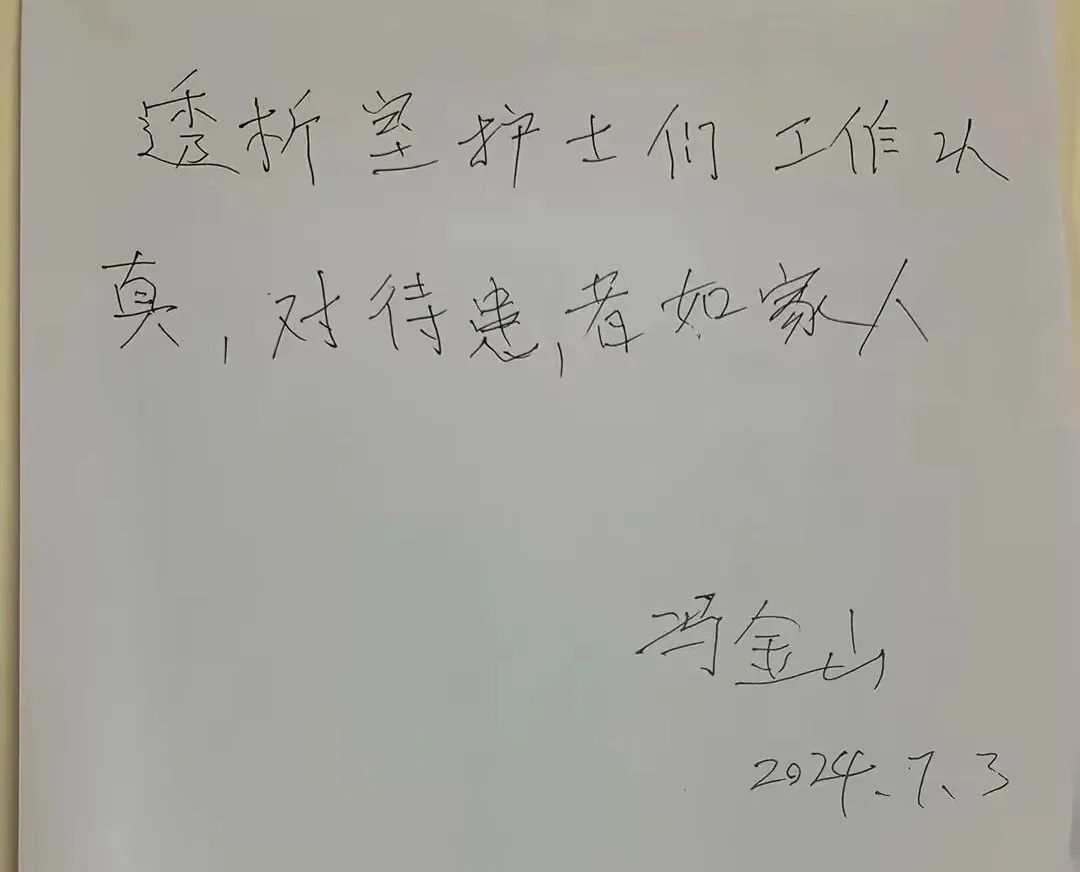 透析室护士们工作认
真,对待患,者如家人
冯金山
2024.7.3